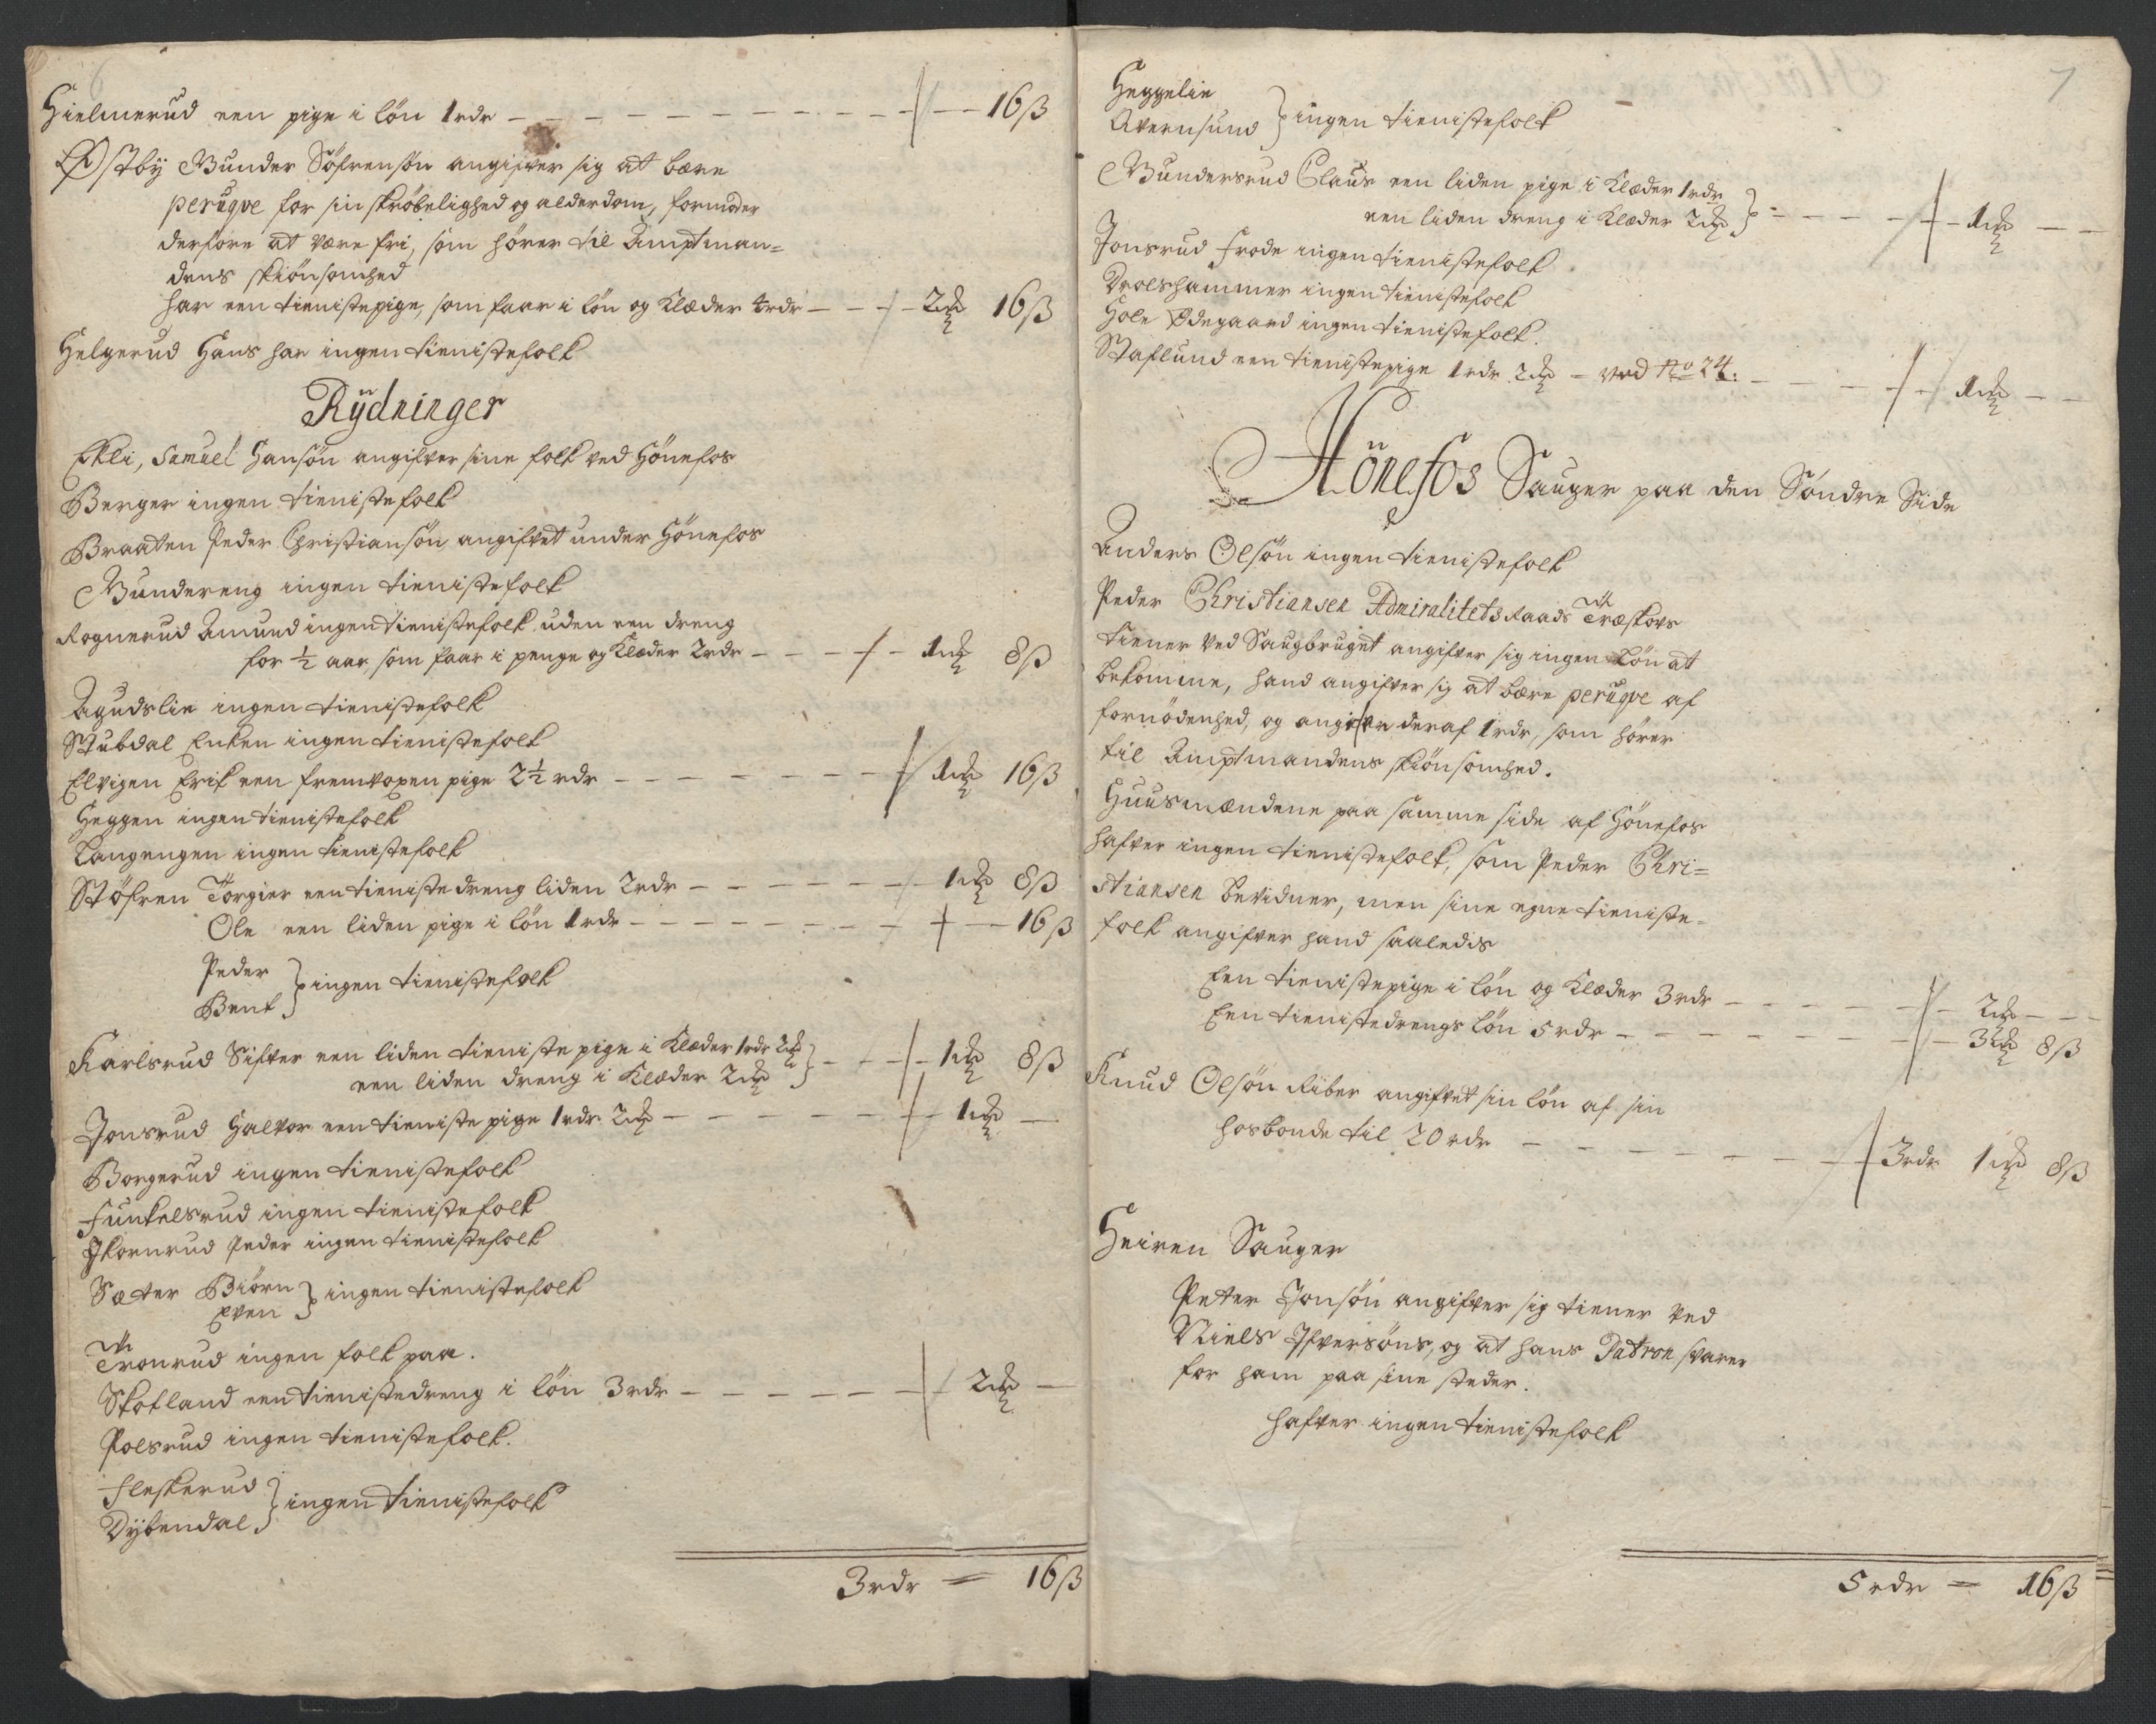 Hielmerud een pige i lön 1 rdr – – – 16 β
Østby Gunder Söfrensön angifver sig at bære
perüqve for sin skröbelighed og alderdom, formoder
derfore at være fri, som hörer til Amptman=
dens skiönsomhed
har een tienistepige, som faar i lön og Klæder 4 rdr – – – 2 mk 16 β
Helgerud Hans har ingen tienistefolk
Rÿdninger
Ekli, Samuel Hansön angifver sine folk ved Hönefos
Berger ingen tienistefolk
Braaten Peder Christiansön angifvet under Hönefos
Gundereng ingen tienistefolk
Rognerud Amund ingen tienistefolk uden een dreng
for ½ aar, som faar i penge og Klæder 2 rdr – – – 1 mk 8 β
Agudslie ingen tienistefolk
Stubdal Enken ingen tienistefolk
Elvigen Erik een fremvoxen pige 2½ rdr – – – 1 mk 16 β
Heggen ingen tienistefolk
Langengen ingen tienistefolk
Stöfren Törgier een tieniste dreng liden 2 rdr – – – 1 mk 8 β
Ole een liden pige i lön 1 rdr – – – 16 β
Peder
Bent } ingen tienistefolk
Karlsrud Sifver een liden tieniste pige i Klæder 1 rdr 2 mk
een liden dreng i Klæder 2 mk } – – – 1 mk 8 β
Jonsrud Halvor een tieniste pige 1 rdr 2 mk – – – 1 mk –
Borgerud ingen tienistefolk
Funkelsrud ingen tienistefolk
Ikornrud Peder ingen tienistefolk
Sæter Biörn
Even } ingen tienistefolk
Tronrud ingen folk paa.
Skotland een tienistedreng i lön 3 rdr – – – 2 mk –
Polsrud ingen tienistefolk.
Fleskerud
Dÿbendal } ingen tienistefolk
3 rdr = 16 β
7
Heggelie
Avernsund } ingen tienistefolk
Gundersrud Claus een liden pige i Klæder 1 rdr
een liden dreng i Klæder 2 mk } – – – 1 mk – –
Jonsrud Frode ingen tienistefolk
Drolshammer ingen tienistefolk
Hole Ödegaard ingen tienistefolk.
Staflund een tienistepige 1 rdr 2 mk – ved No 24. – – – 1 mk – –
Hönefos Sauger paa den Söndre Side
Anders Olsön ingen tienistefolk
Peder Christiansen Admiralitets Raads Træskovs
tiener ved Saugbruget angifver sig ingen Lön at
bekomme, hand angifver sig at bære perüqve af
fornödenhed, og angifver deraf 1 rdr, som hörer
til Amptmandens skiönsomhed.
Huusmændene paa samme side af Hönefos
hafver ingen tienistefolk, som Peder Chri=
stiansen bevidner, men sine egne tieniste=
folk angifver hand saaledis
Een tienistepige i lön og Klæder 3 rdr – – – 2 mk – –
Een tienistedrengs lön 5 rdr – – – 3 mk 8 β
Knud Olsön Riber angifvet sin lön af sin
Hosbonde til 20 rdr – – – 3 rdr 1 mk 8 β
Heiren Sauger
Peter Jonsön angifver sig tiener ved
Niels Ifversöns, og at hans Patron svarer
for ham paa sine steder.
hafver ingen tienistefolk
5 rdr = 16 β